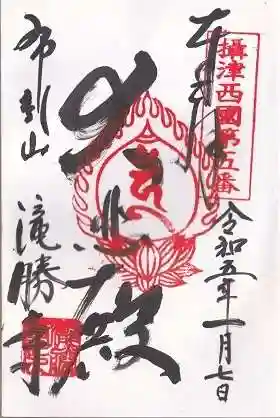 奉拝
攝津西國第五番
令和五年一月七日
大悲殿
布引山
滝勝寺